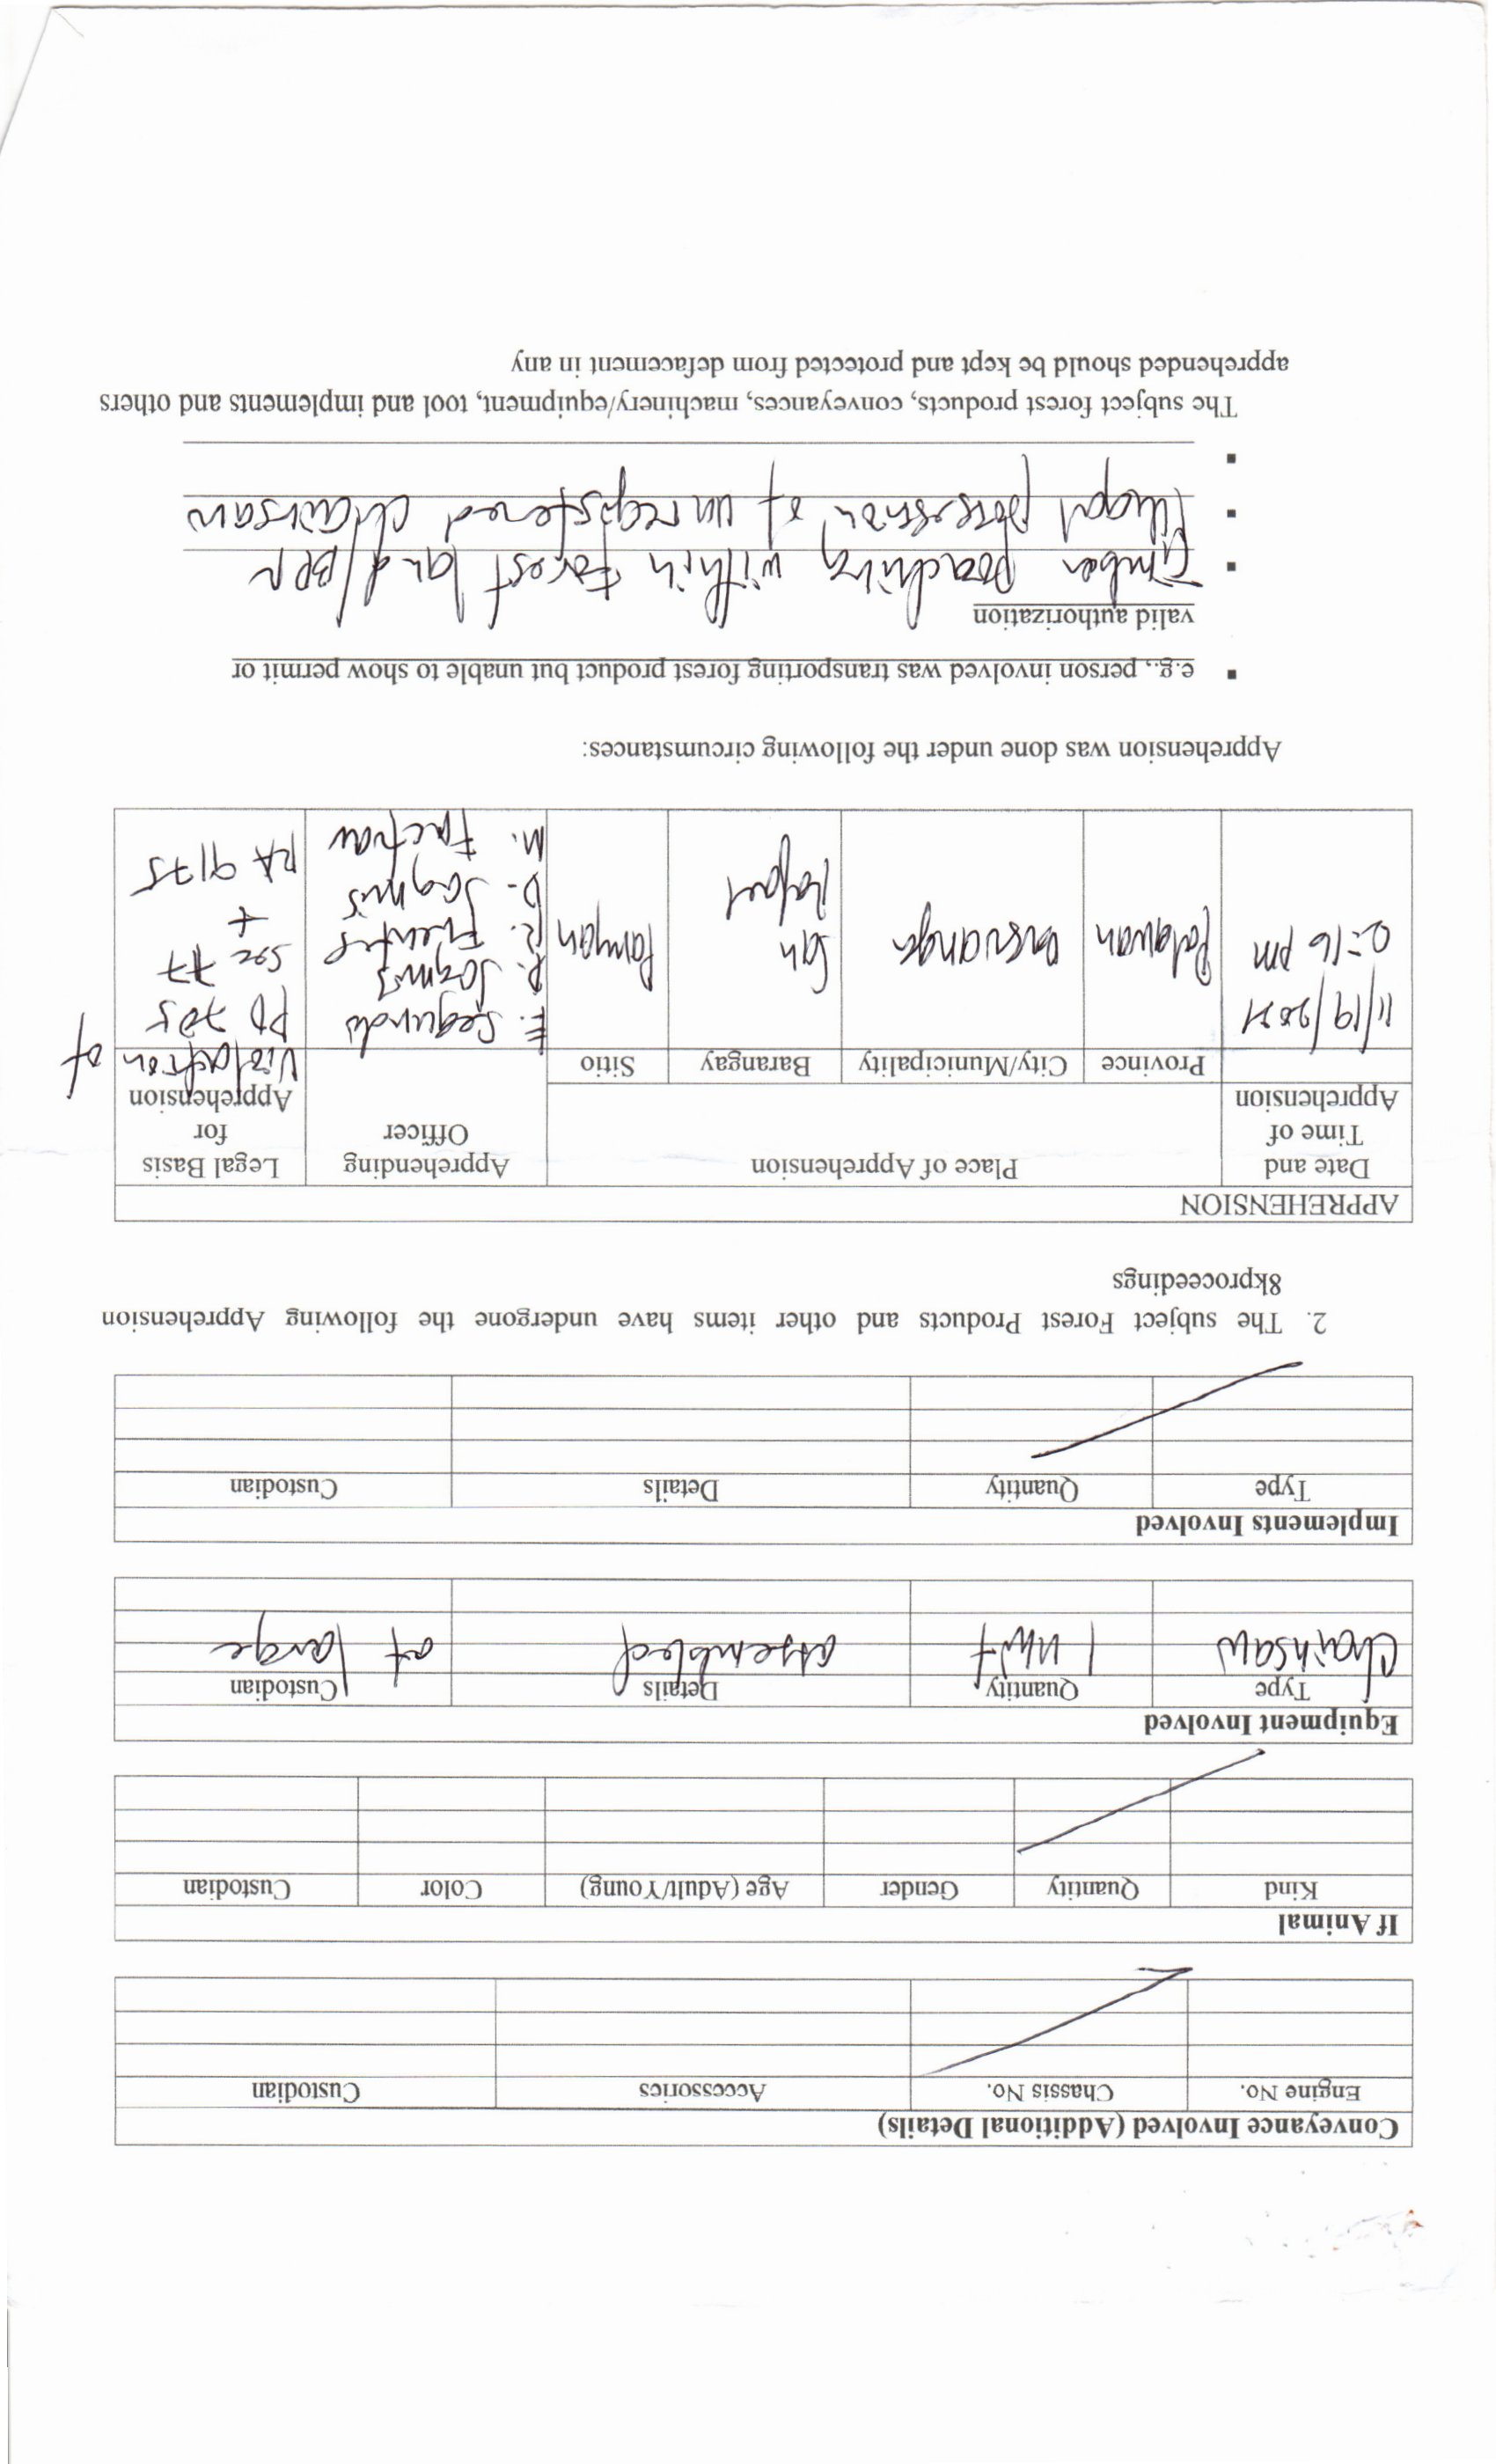 Conveyance Involved (Additional Details)
Engine No. Chassis No. Accessories Custodian
If Animal
Kind Quantity Gender Age (Adult/Young) Color Custodian
Equipment Involved
Type Quantity Details Custodian
Chainsaw 1 unit assembled at large
Implements Involved
Type Quantity Details Custodian
2. The subject Forest Products and other items have undergone the following Apprehension
8kproceedings
APPREHENSION
Date and Time of Apprehension
Place of Apprehension
Apprehending Officer
Legal Basis for Apprehension
Province City/Municipality Barangay Sitio
11/19/2021
2:16 pm
Palawan
San Rafael
E. Segundo
R. Fuentes
Violation of
PD 705
sec 77
+
RA 9175
Apprehension was done under the following circumstances:
▪ e.g., person involved was transporting forest product but unable to show permit or
valid authorization
▪ Timber poaching within forest land/
▪ Illegal possession of unregistered chainsaw
▪
The subject forest products, conveyances, machinery/equipment, tool and implements and others
apprehended should be kept and protected from defacement in any